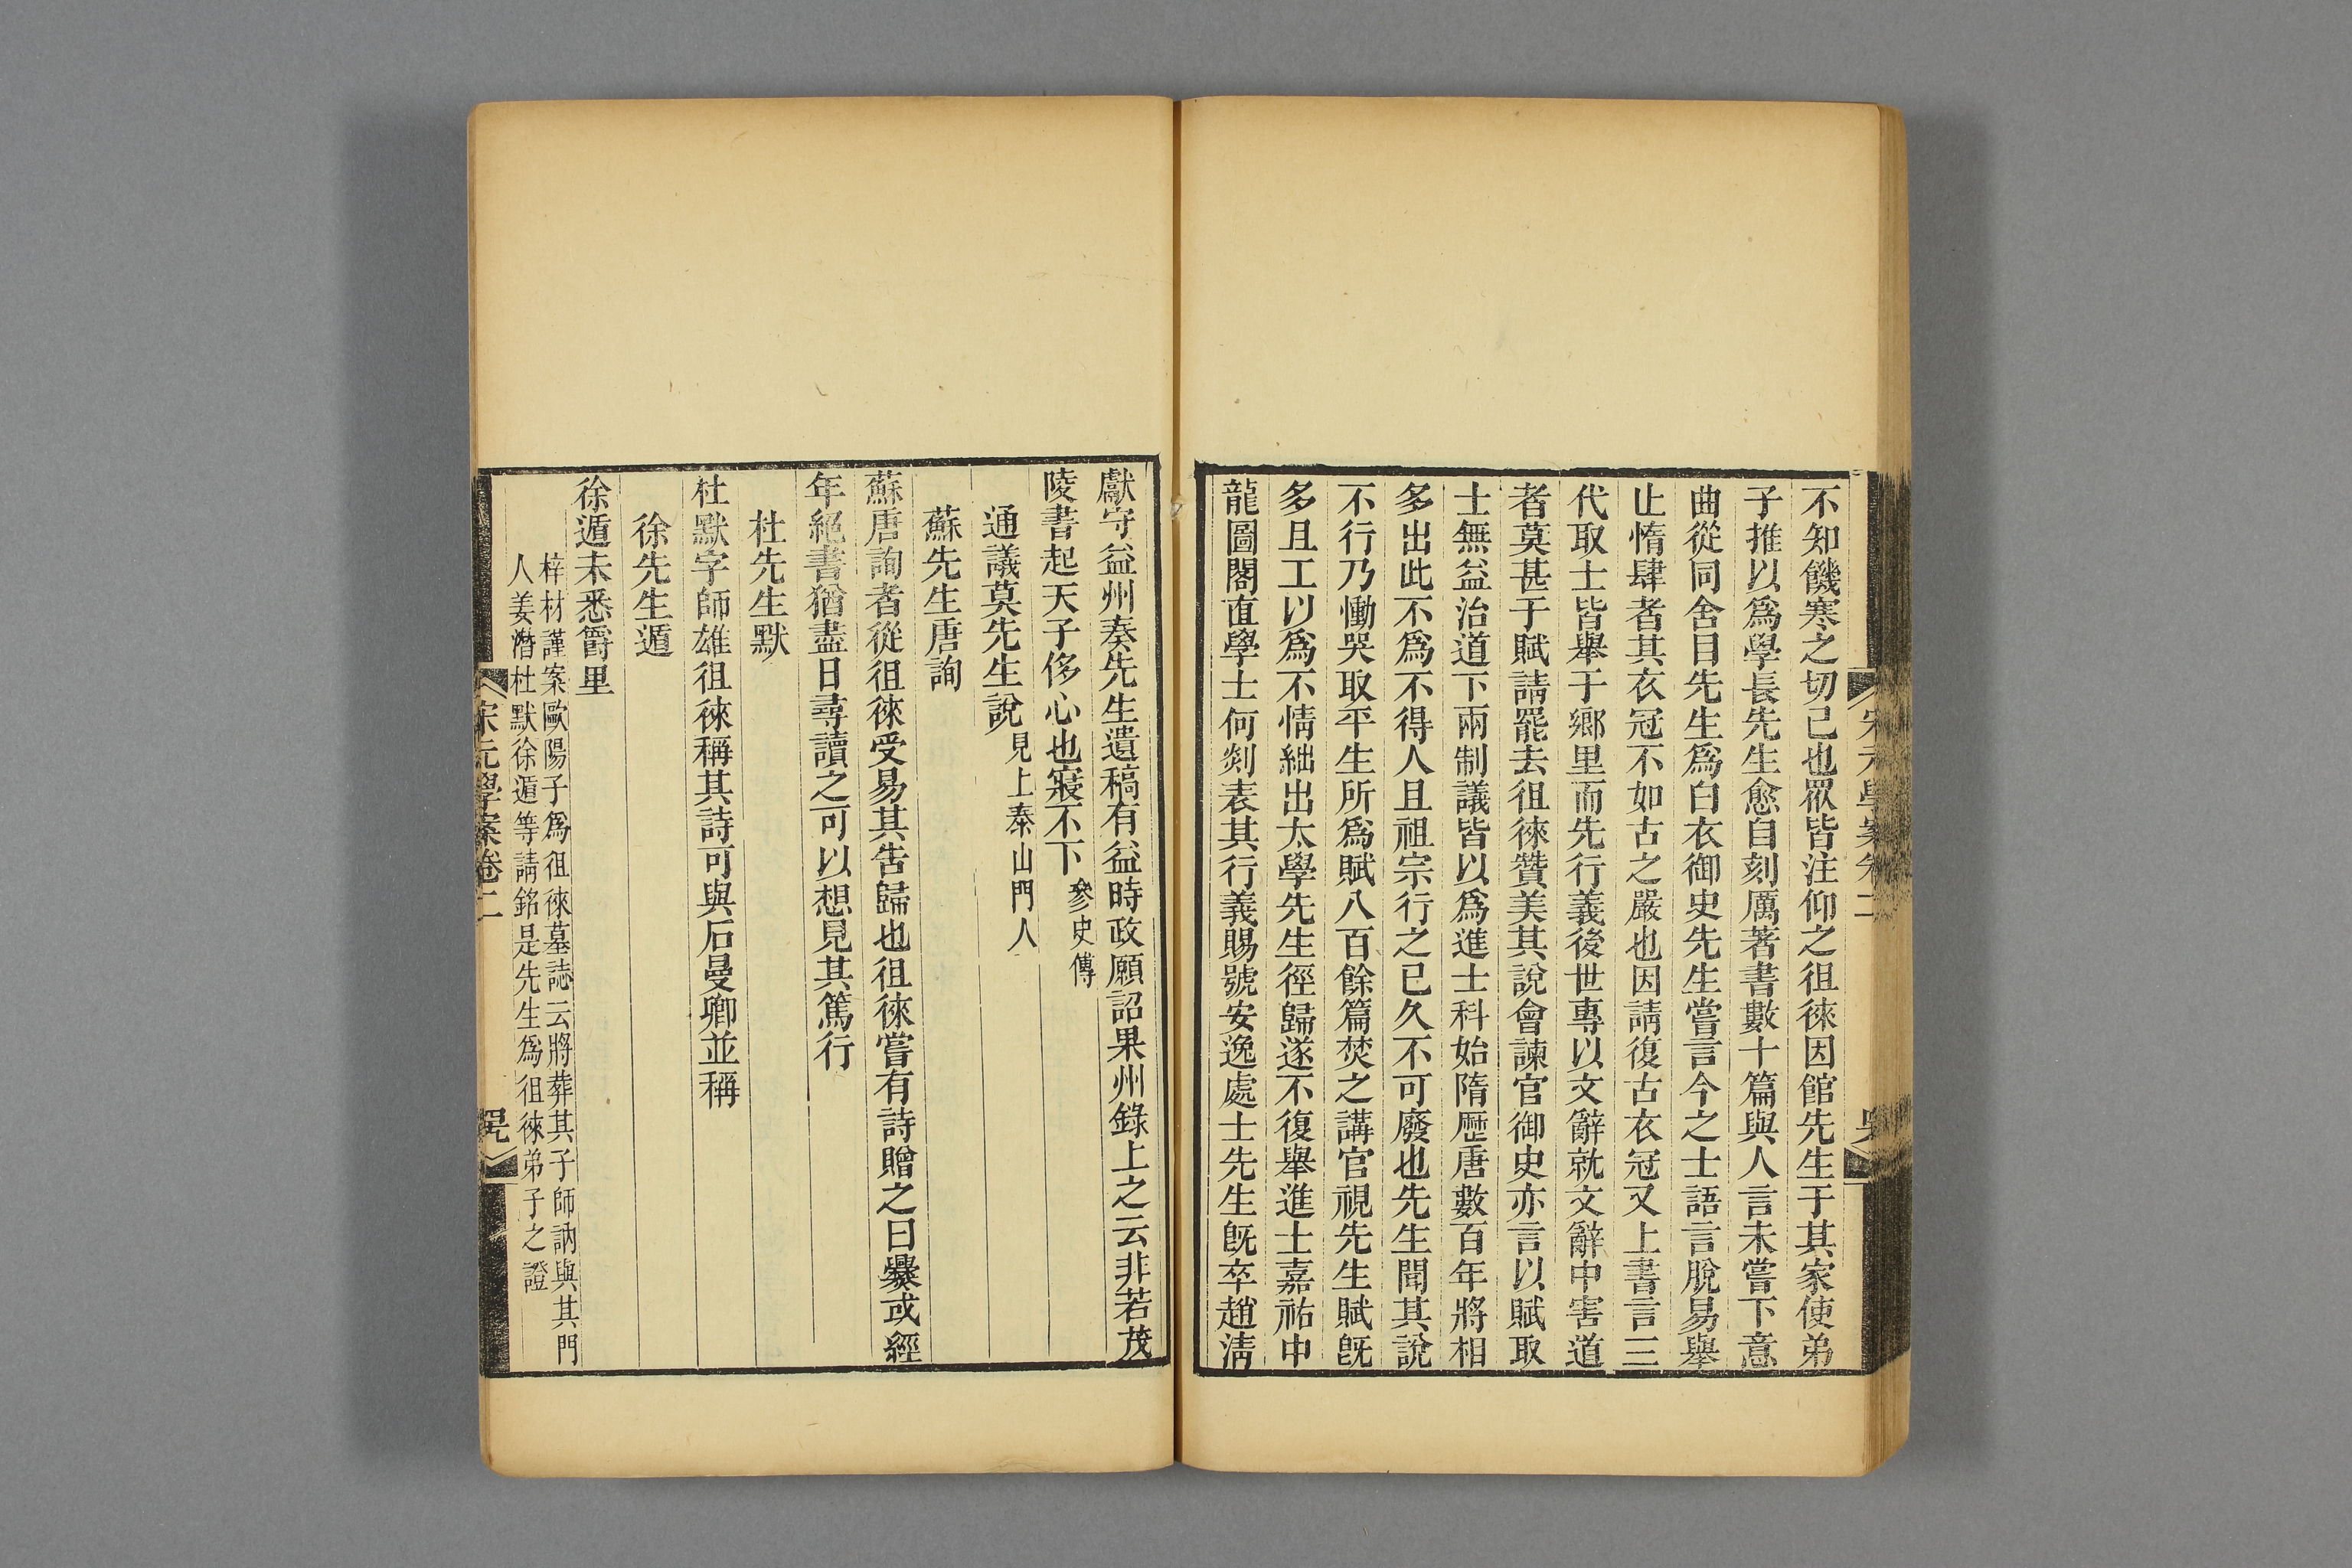 不知饑寒之切己也眾皆注仰之徂徠因館先生于其家使弟
子推以爲學長先生愈自刻厲著書數十篇與人言未嘗下意
曲從同舍目先生爲白衣御史先生嘗言今之士語言脫易舉
止惰肆者其衣冠不如古之嚴也因請復古衣冠又上書言三
代取士皆舉于鄉里而先行義後世專以文辭就文辭中害道
者莫甚于賦請罷去徂徠贊美其說會諫官御史亦言以賦取
士無益治道下兩制議皆以爲進士科始隋歷唐數百年將相
多出此不爲不得人且祖宗行之已久不可廢也先生聞其說
不行乃慟哭取平生所爲賦八百餘篇焚之講官視先生賦旣
多且工以爲不情絀出太學先生徑歸遂不復舉進士嘉祐中
龍圖閣直學士何剡表其行義賜號安逸處士先生旣卒趙淸
獻守益州奏先生遺稿有益時政願詔果州錄上之云非若茂
陵書起天子侈心也寢不下參史傳
通議莫先生說見上泰山門人
蘇先生唐詢
蘇唐詢者從徂徠受易其告歸也徂徠嘗有詩贈之曰爨或經
年絕書猶盡日尋讀之可以想見其篤行
杜先生默
杜默字師雄徂徠稱其詩可與石曼卿並稱
徐先生遁
徐遁未悉爵里
梓材謹案歐陽子爲徂徠墓誌云將葬其子師訥與其門
人姜潛杜默徐遁等請銘是先生爲徂徠弟子之證
宋元學案卷二